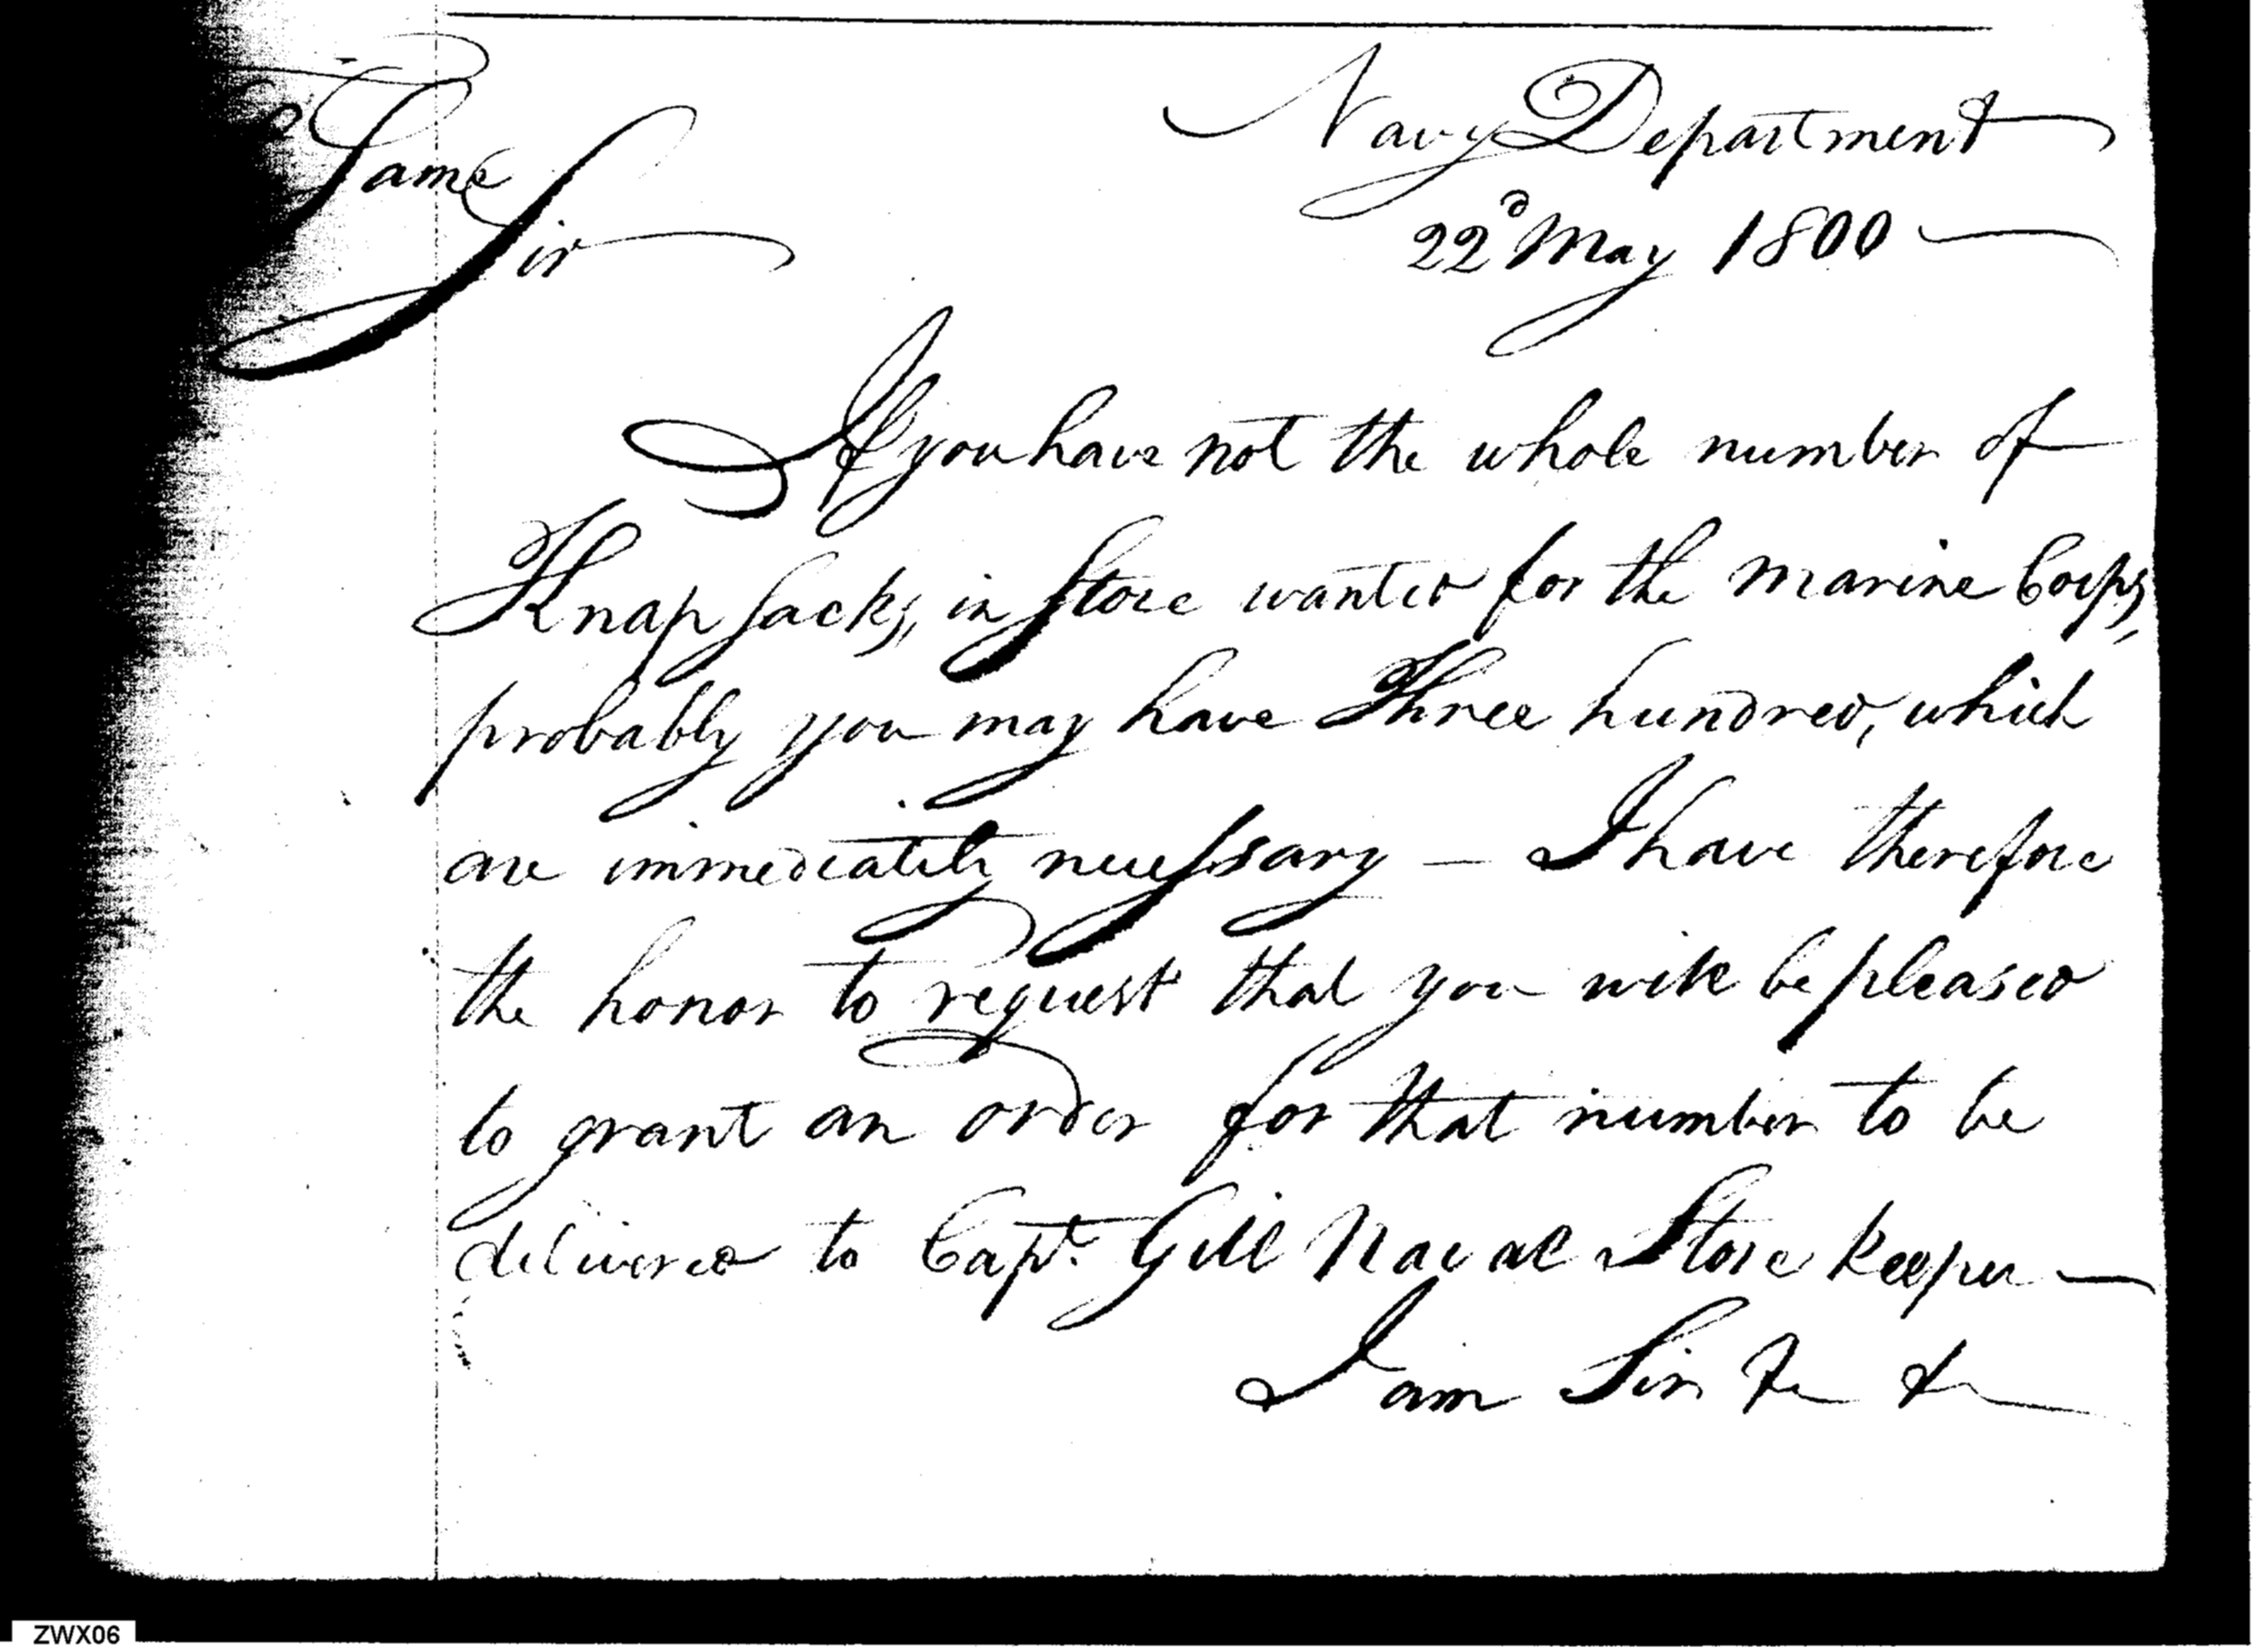 Navy Department
Same
22d May 1800 —
Sir
If you have not the whole number of
Knapsacks, in Store wanted for the marine Corps,
probably you may have Three hundred, which
are immediately necessary — I have therefore
the honor to request that you will be pleased
to grant an order for that number to be
delivered to Capt. Gill Naval Store keeper —
I am Sir &c &c
ZWX06